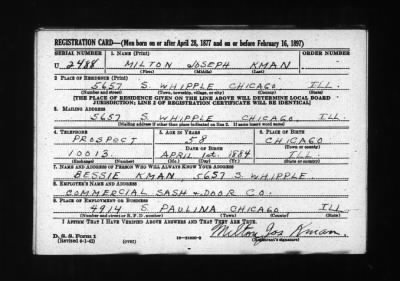 REGISTRATION CARD—(Men born on or after April 28, 1877 and on or before February 16, 1897)
SERIAL NUMBER 1. NAME (Print) ORDER NUMBER
U 2488 MILTON JOSEPH KMAN
(First) (Middle) (Last)
2. PLACE OF RESIDENCE (Print)
5657 S. WHIPPLE CHICAGO ILL.
(Number and street) (Town, township, village, or city) (County) (State)
[THE PLACE OF RESIDENCE GIVEN ON THE LINE ABOVE WILL DETERMINE LOCAL BOARD
JURISDICTION; LINE 2 OF REGISTRATION CERTIFICATE WILL BE IDENTICAL]
3. MAILING ADDRESS
5657 S. WHIPPLE CHICAGO, ILL.
[Mailing address if other than place indicated on line 2. If same insert word same]
4. TELEPHONE 5. AGE IN YEARS 6. PLACE OF BIRTH
PROSPECT 58 CHICAGO
DATE OF BIRTH (Town or county)
10013 APRIL 1st. 1884 ILL
(Exchange) (Number) (Mo.) (Day) (Yr.) (State or country)
7. NAME AND ADDRESS OF PERSON WHO WILL ALWAYS KNOW YOUR ADDRESS
BESSIE KMAN 5657 S. WHIPPLE
8. EMPLOYER'S NAME AND ADDRESS
COMMERCIAL SASH & DOOR CO.
9. PLACE OF EMPLOYMENT OR BUSINESS
4914 S. PAULINA CHICAGO ILL
(Number and street or R. F. D. number) (Town) (County) (State)
I AFFIRM THAT I HAVE VERIFIED ABOVE ANSWERS AND THAT THEY ARE TRUE.
D. S. S. Form 1
(Revised 4-1-42) (over) Milton Jos Kman.
(Registrant's signature)